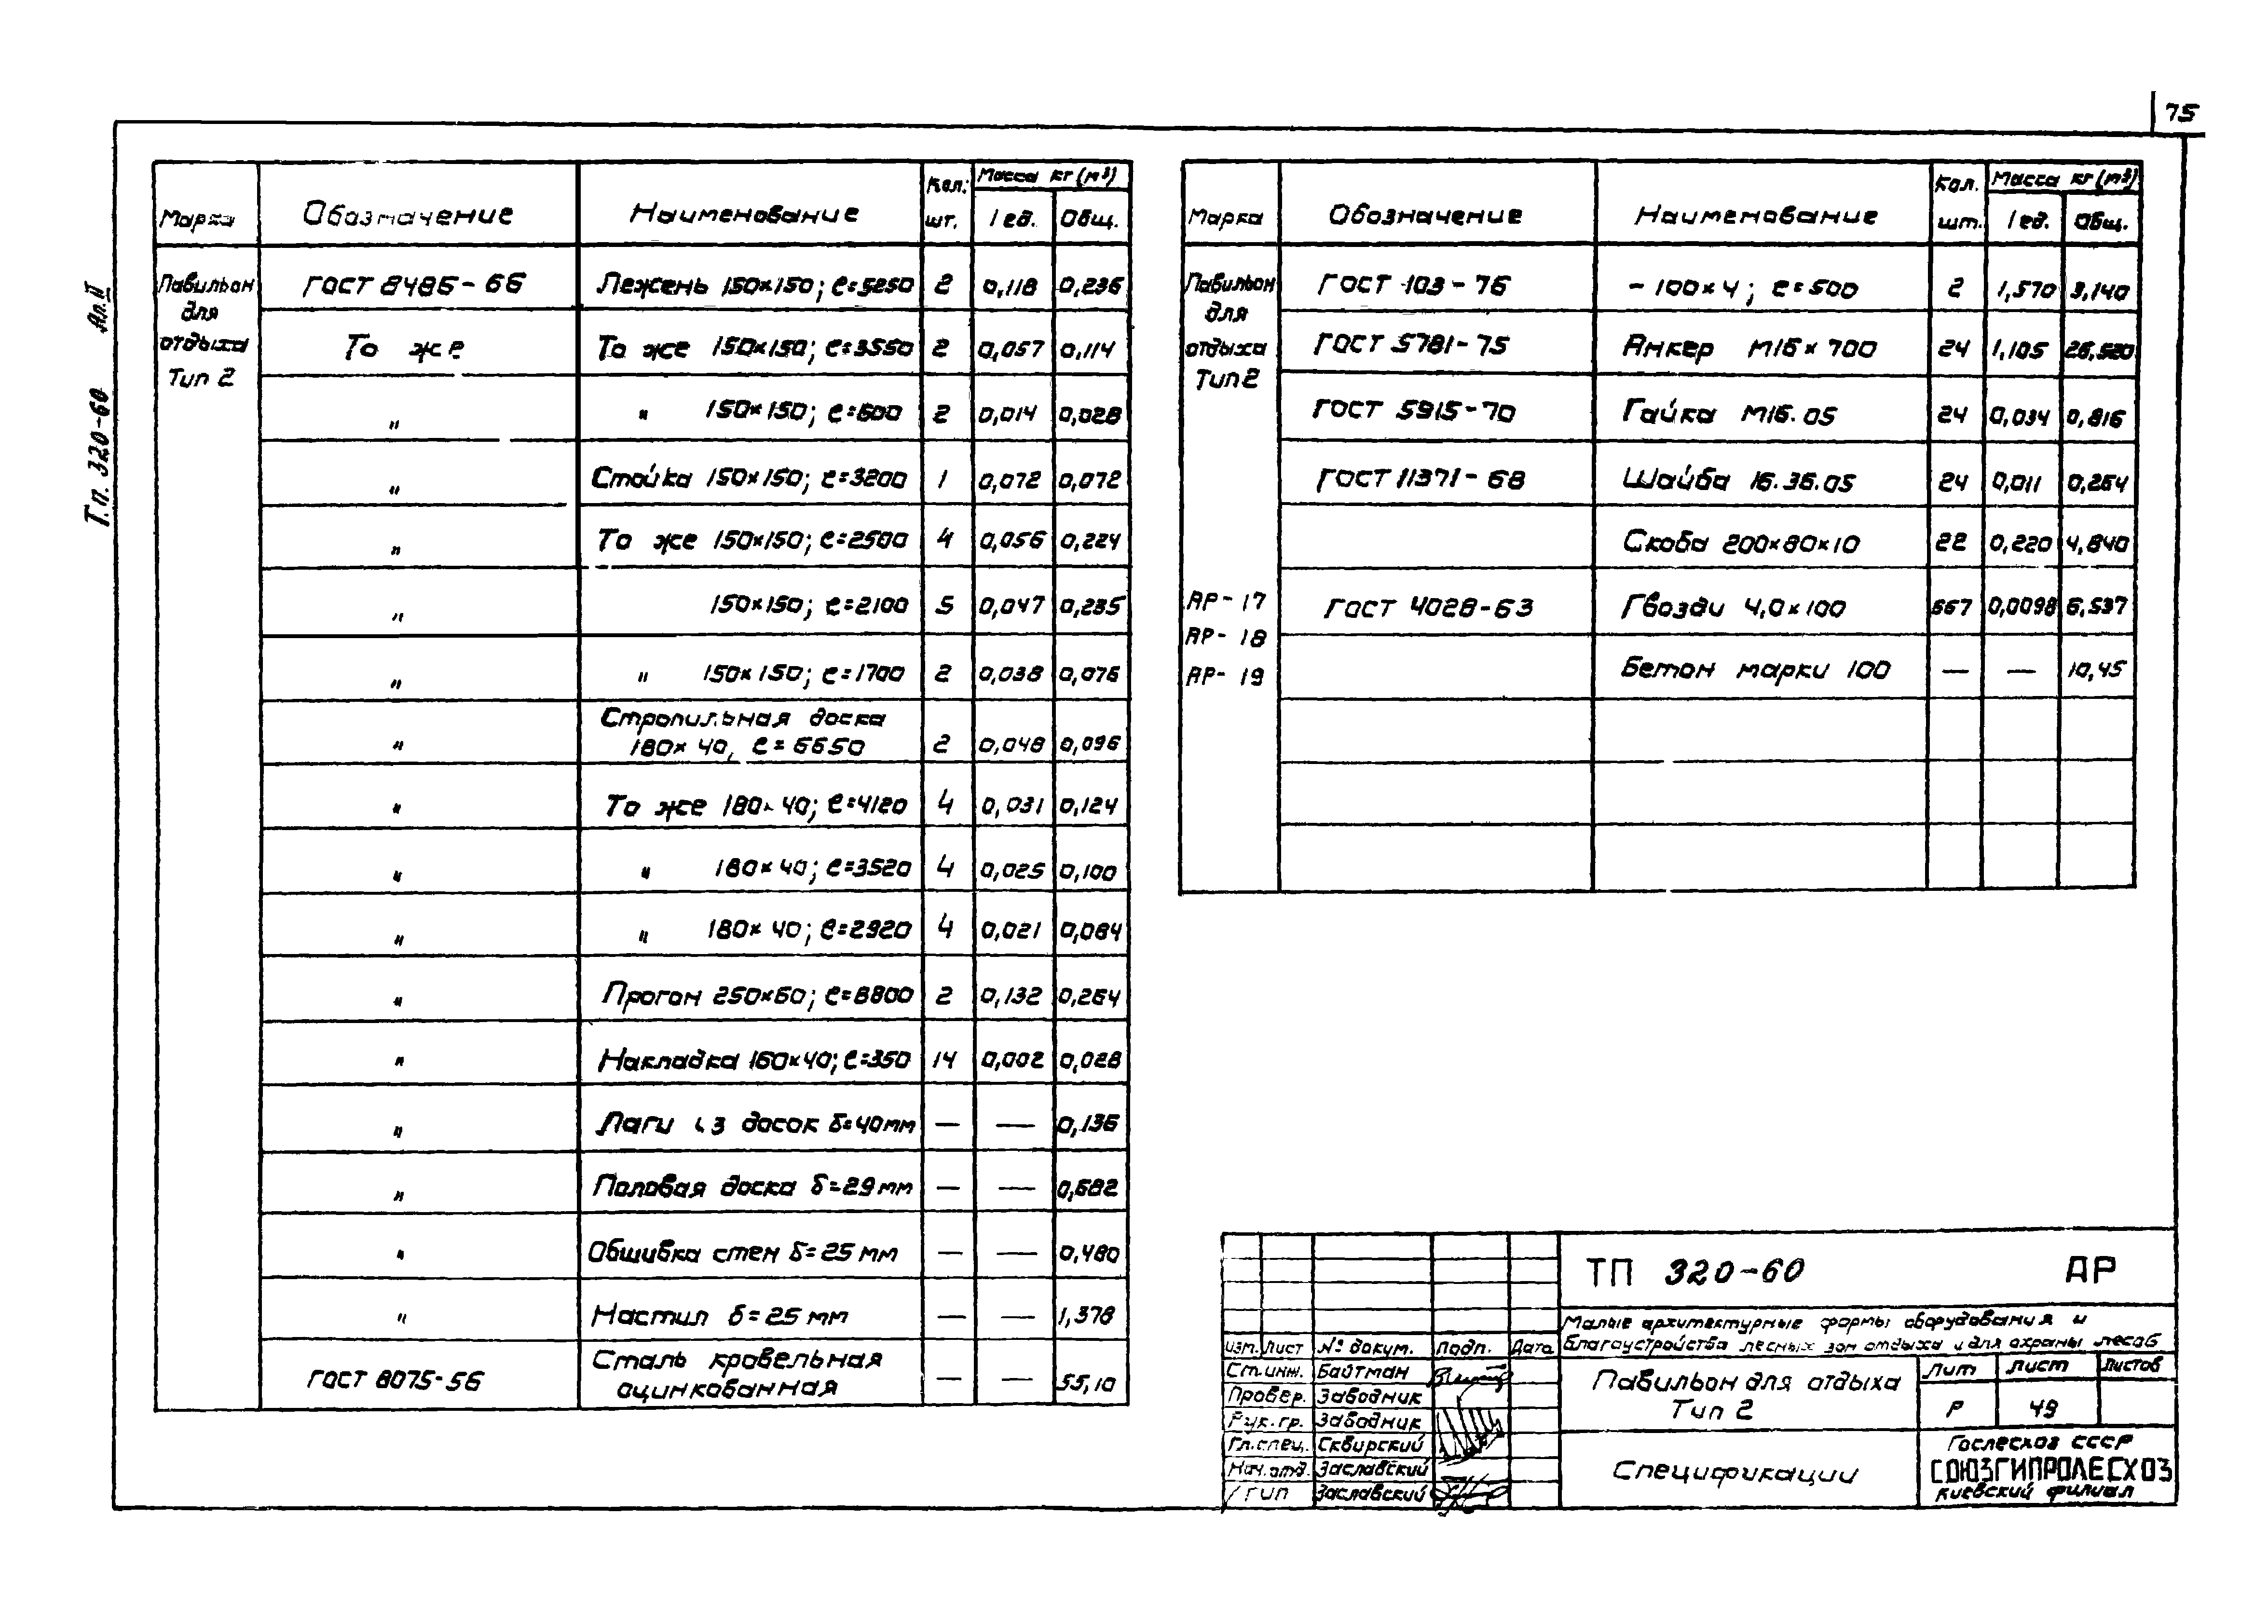 75
Т.п. 320-60 Ал. II
Марка Обозначение Наименование Кол. шт. Масса кг (м³) 1 ед. Общ.
Павильон для отдыха Тип 2
ГОСТ 8486-66 Лежень 150×150; ℓ=5250 2 0,118 0,236
То же То же 150×150; ℓ=3550 2 0,057 0,114
" " 150×150; ℓ=600 2 0,014 0,028
" Стойка 150×150; ℓ=3200 1 0,072 0,072
" То же 150×150; ℓ=2500 4 0,056 0,224
" 150×150; ℓ=2100 5 0,047 0,235
" " 150×150; ℓ=1700 2 0,038 0,076
Стропильная доска
" 180×40, ℓ=6650 2 0,048 0,096
" То же 180×40; ℓ=4120 4 0,031 0,124
" " 180×40; ℓ=3520 4 0,025 0,100
" " 180×40; ℓ=2920 4 0,021 0,084
" Прогон 250×60; ℓ=8800 2 0,132 0,264
" Накладка 160×40; ℓ=350 14 0,002 0,028
" Лаги из досок δ=40мм — — 0,136
" Половая доска δ=29мм — — 0,682
" Обшивка стен δ=25мм — — 0,480
" Настил δ=25мм — — 1,378
ГОСТ 8075-56 Сталь кровельная
оцинкованная — — 55,10
Марка Обозначение Наименование Кол. шт. Масса кг (м³) 1 ед. Общ.
Павильон для отдыха Тип 2
ГОСТ 103-76 -100×4; ℓ=500 2 1,570 3,140
ГОСТ 5781-75 Анкер М16×700 24 1,105 26,520
ГОСТ 5915-70 Гайка М16.05 24 0,034 0,816
ГОСТ 11371-68 Шайба 16.36.05 24 0,011 0,264
Скоба 200×80×10 22 0,220 4,840
АР-17 ГОСТ 4028-63 Гвозди 4,0×100 667 0,0098 6,537
АР-18
АР-19 Бетон марки 100 — — 10,45
ТП 320-60 АР
Малые архитектурные формы оборудования и
благоустройства лесных зон отдыха и для охраны лесов
Изм. Лист № докум. Подп. Дата
Ст.инж. Байтман
Провер. Заводник
Рук.гр. Заводник
Гл.спец. Сквирский
Нач.отд. Заславский
ГИП Заславский
Павильон для отдыха
Тип 2
Лит Лист Листов
Р 49
Спецификации
Гослесхоз СССР
СОЮЗГИПРОЛЕСХОЗ
киевский филиал